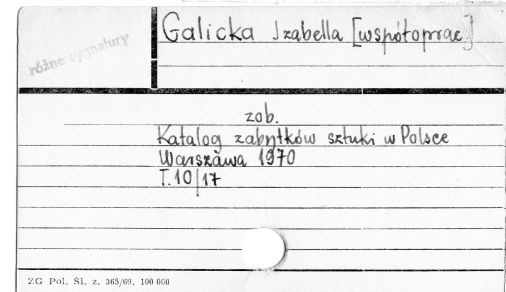 Galicka Izabella [współoprac]
różne sygnatury
zob.
Katalog zabytków sztuki w Polsce
Warszawa 1970
T.10/17
ZG Pol. Śl. z. 365/69. 100 000